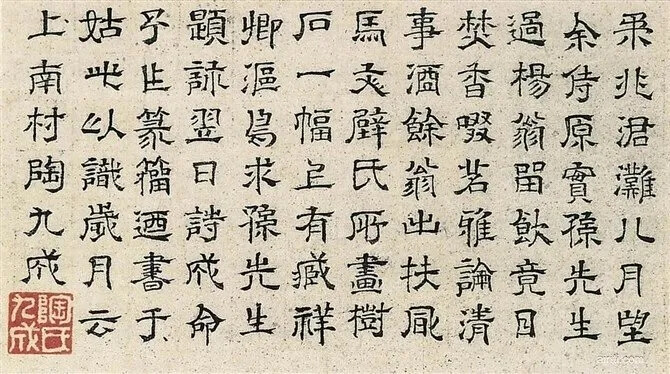 柔兆涒灘八月望
余侍原實孫先生
過楊翁留飲竟日
焚香啜茗雅論清
事酒餘翁出扶風
馬文璧氏所畫樹
石一幅上有臧祥
卿漚求孫先生
題詠翌日詩成命
予篆籀迺書于
姑此以識歲月云
上南村陶九成
陶氏九成